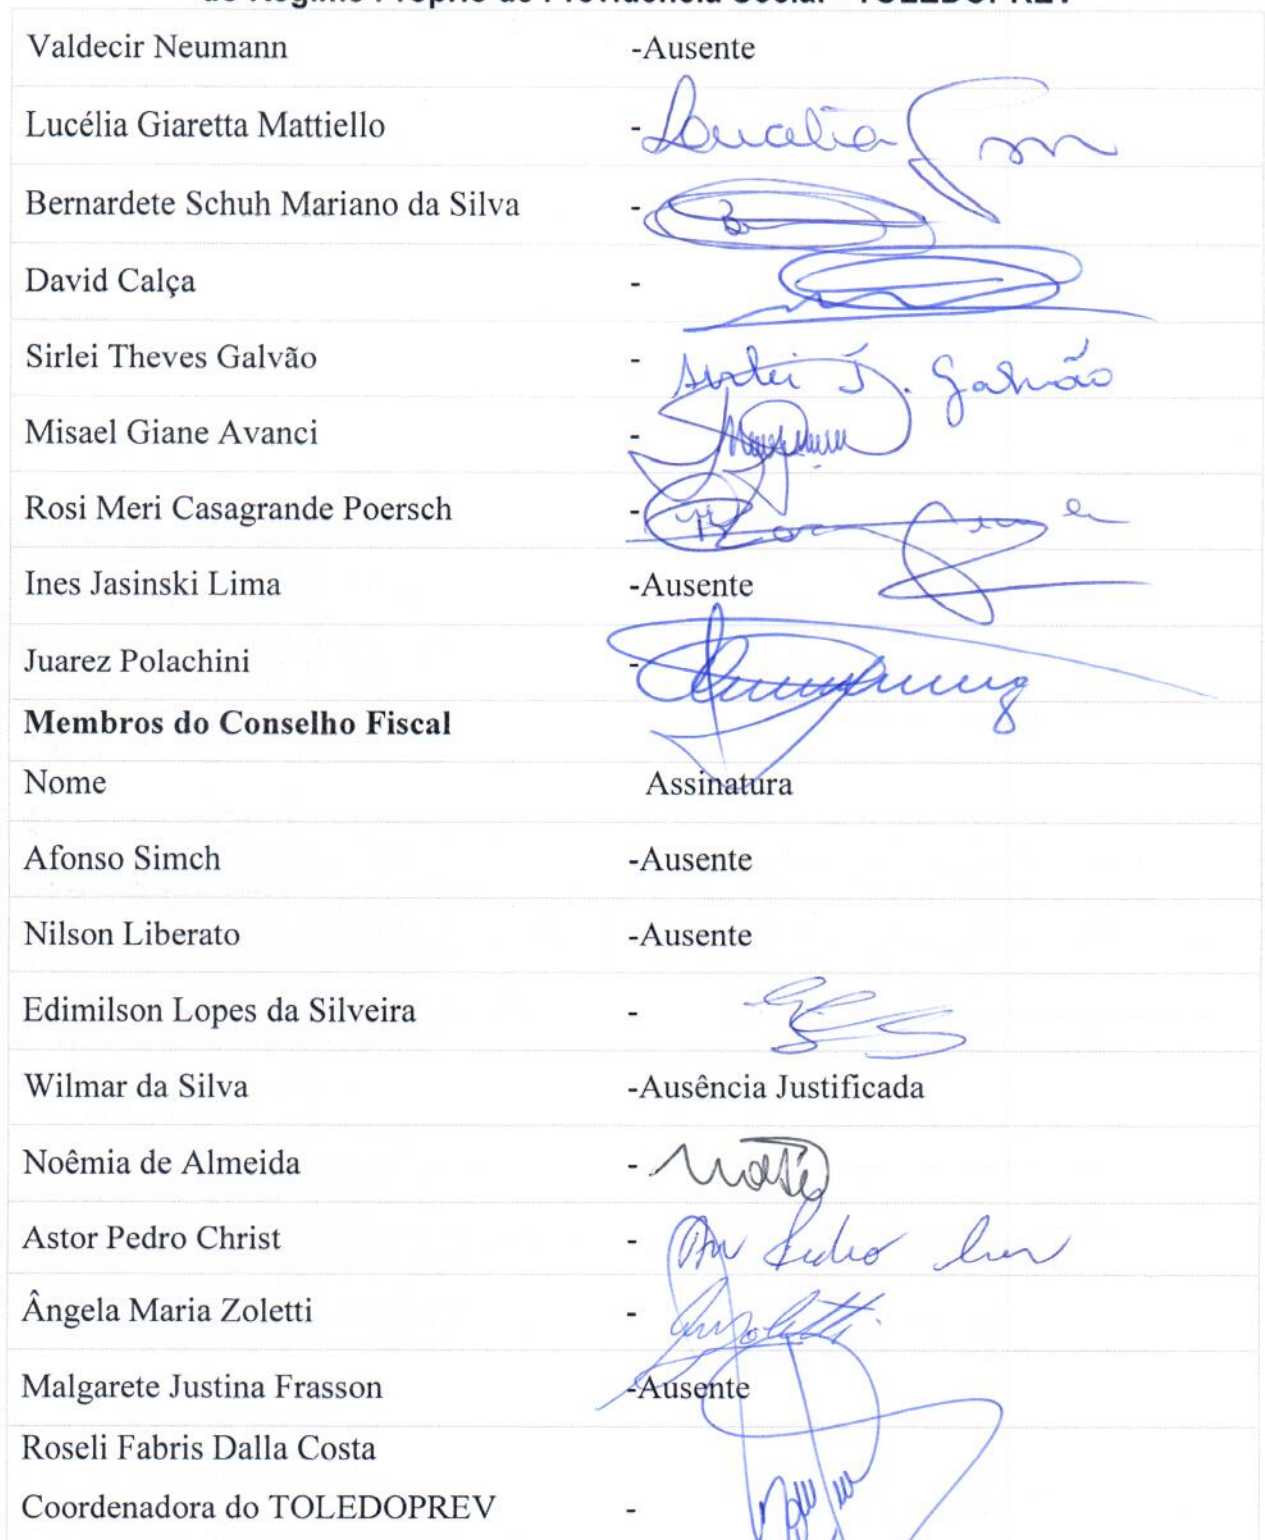 do Regime Próprio de Previdência Social - TOLEDOPREV
Valdecir Neumann -Ausente
Lucélia Giaretta Mattiello - Lucelia
Bernardete Schuh Mariano da Silva - B
David Calça -
Sirlei Theves Galvão - Sirlei T. Galvão
Misael Giane Avanci -
Rosi Meri Casagrande Poersch -
Ines Jasinski Lima -Ausente
Juarez Polachini -
Membros do Conselho Fiscal
Nome Assinatura
Afonso Simch -Ausente
Nilson Liberato -Ausente
Edimilson Lopes da Silveira -
Wilmar da Silva -Ausência Justificada
Noêmia de Almeida -
Astor Pedro Christ - Pedro
Ângela Maria Zoletti - Zoletti
Malgarete Justina Frasson -Ausente
Roseli Fabris Dalla Costa
Coordenadora do TOLEDOPREV -